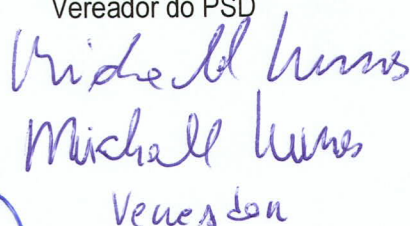 Vereador do PSD
Michell Nunes
Michell Nunes
Vereador